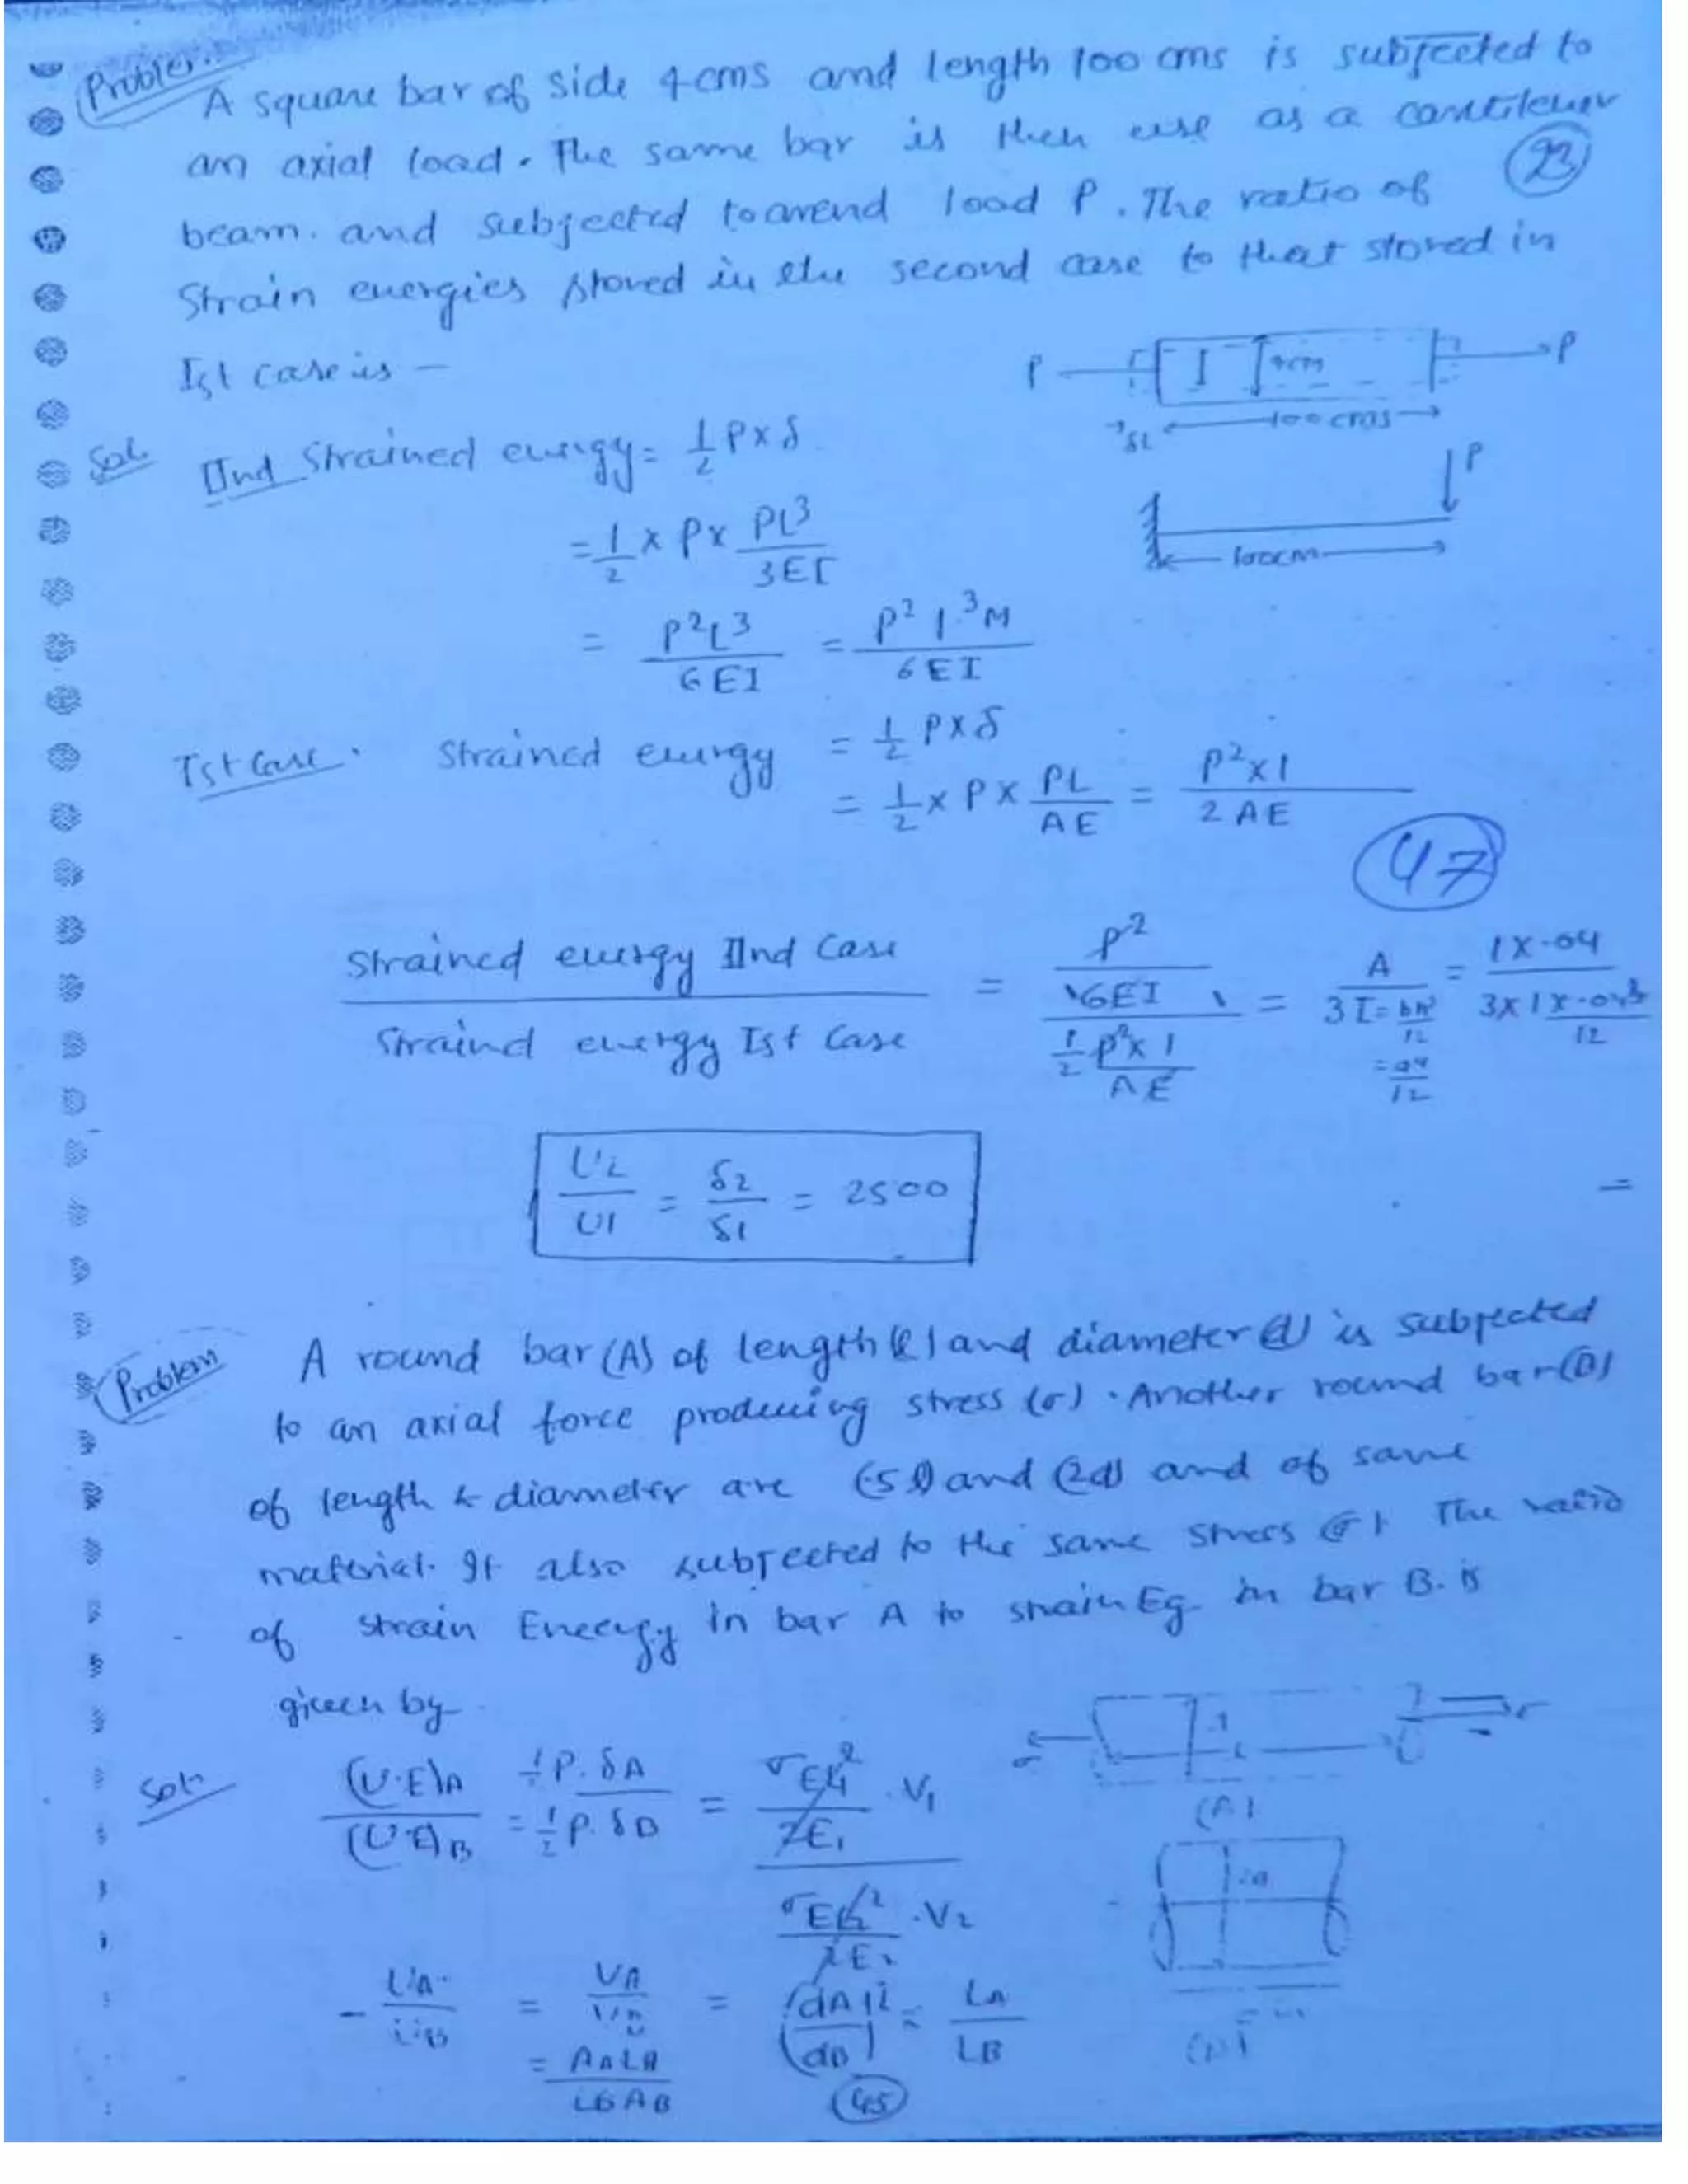 Problem
A square bar of side 4 cms and length 100 cms is subjected to
an axial load. The same bar is then use as a cantilever
beam. and subjected to an end load P. The ratio of
(23)
Strain energies stored in the second case to that stored in
Ist case is –
P P
4cm
100 cms
δL
P
100cm
Sol. IInd Strained energy = 1/2 P x δ
= 1/2 x P x PL³/3EI
= P²L³/6EI = P² 1.³M/6EI
Ist Case. Strained energy = 1/2 P x δ
= 1/2 x P x PL/AE = P² x 1/2 AE
(47)
Strained energy IInd Case / Straind energy Ist Case = P²/6EI / 1/2 P² x 1/AE = A/3 I = bh³/12 = 1 x .04 / 3 x 1 x .04³/12
= 04/12
U2/U1 = δ2/δ1 = 2500
=
Problem
A round bar (A) of length (l) and diameter (d) is subjected
to an axial force producing stress (σ). Another round bar (B)
of length & diameter are (5l) and (2d) and of same
material. It also subjected to the same stress (σ). The ratio
of strain Energy in bar A to strain Eg in bar B. is
given by
Soln (U.E)A/(U.E)B = 1/2 P. δA / 1/2 P. δB = σ E1² /2E1 . V1 / σ E² /2E2 . V2
(A)
UA/UB = VA/VB = (dA/dB)² = LA/LB
= AA LA/LB AB
(45)